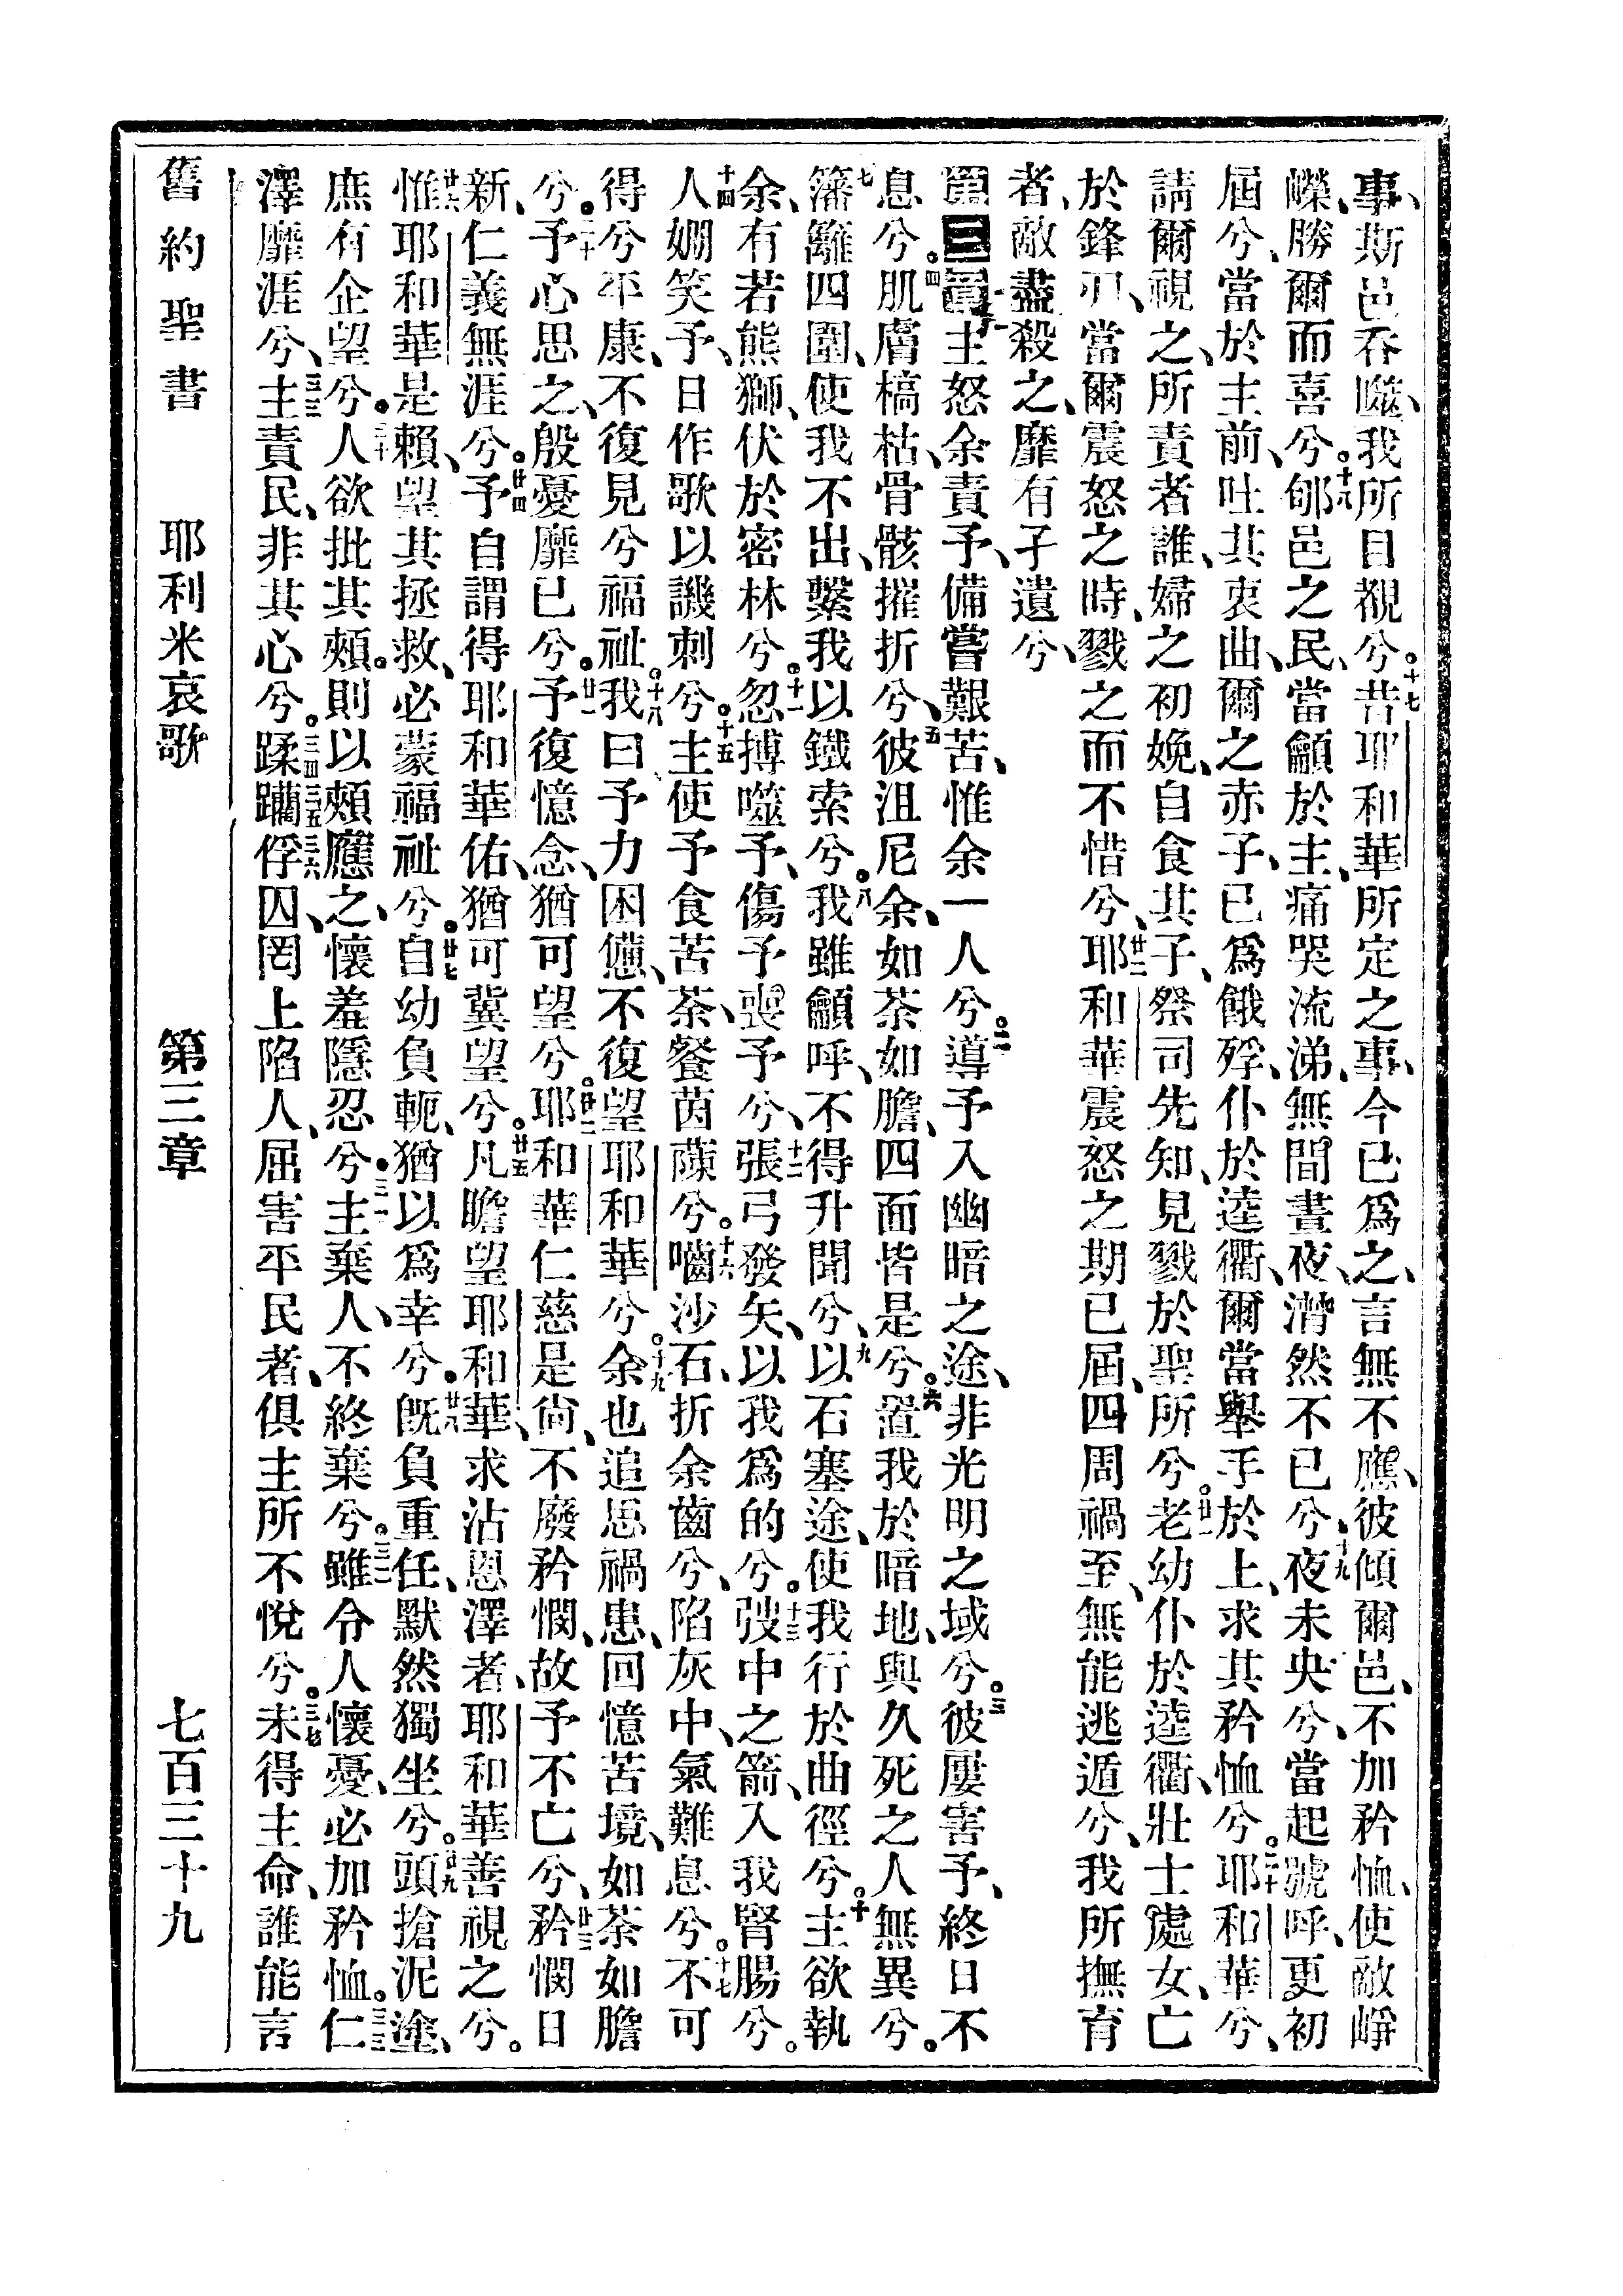 事、斯邑吞噬、我所目覩兮。十七昔耶和華所定之事、今已爲之、言無不應、彼傾爾邑、不加矜恤、使敵崢
嶸、勝爾而喜兮。十八郇邑之民、當籲於主、痛哭流涕、無間晝夜、潸然不已兮、十九夜未央兮、當起號呼、更初
屆兮、當於主前、吐其衷曲、爾之赤子、已爲餓殍、仆於逵衢、爾當舉手於上、求其矜恤兮。二十耶和華兮、
請爾視之、所責者誰、婦之初娩、自食其子、祭司先知、見戮於聖所兮。廿一老幼仆於逵衢、壯士處女、亡
於鋒刃、當爾震怒之時、戮之而不惜兮、廿二耶和華震怒之期已屆、四周禍至、無能逃遁兮、我所撫育
者、敵盡殺之、靡有孑遺兮、
第三章主怒余責予、備嘗艱苦、惟余一人兮。二導予入幽暗之途、非光明之域兮。三彼屢害予、終日不
息兮。四肌膚槁枯、骨骸摧折兮、五彼沮尼余、如荼如膽、四面皆是兮。六置我於暗地、與久死之人無異兮。
七籓籬四圍、使我不出、繫我以鐵索兮。八我雖籲呼、不得升聞兮、九以石塞途、使我行於曲徑兮。十主欲執
余、有若熊獅、伏於密林兮。十一忽搏噬予、傷予喪予兮、十二張弓發矢、以我爲的兮。十三弢中之箭、入我腎腸兮。
十四人姍笑予、日作歌以譏刺兮。十五主使予食苦荼、餐茵蔯兮。十六嚙沙石、折余齒兮、陷灰中、氣難息兮。十七不可
得兮平康、不復見兮福祉。十八我曰予力困憊、不復望耶和華兮。十九余也追思禍患、回憶苦境、如荼如膽
兮。二十予心思之、殷憂靡已兮。廿一予復憶念、猶可望兮。廿二耶和華仁慈是尙、不廢矜憫、故予不亡兮、廿三矜憫日
新、仁義無涯兮。廿四予自謂得耶和華佑、猶可冀望兮。廿五凡瞻望耶和華、求沾恩澤者、耶和華善視之兮。
廿六惟耶和華是賴、望其拯救、必蒙福祉兮。廿七自幼負軛、猶以爲幸兮。廿八旣負重任、默然獨坐兮。廿九頭搶泥塗、
庶有企望兮。三十人欲批其頰。則以頰應之、懷羞隱忍兮。三一主棄人、不終棄兮。三二雖令人懷憂、必加矜恤。三三仁
澤靡涯兮、三三主責民、非其心兮。三四蹂躪三五三六俘囚、罔上陷人、屈害平民者、俱主所不悅兮。三七未得主命、誰能言
舊約聖書　耶利米哀歌　第三章　七百三十九